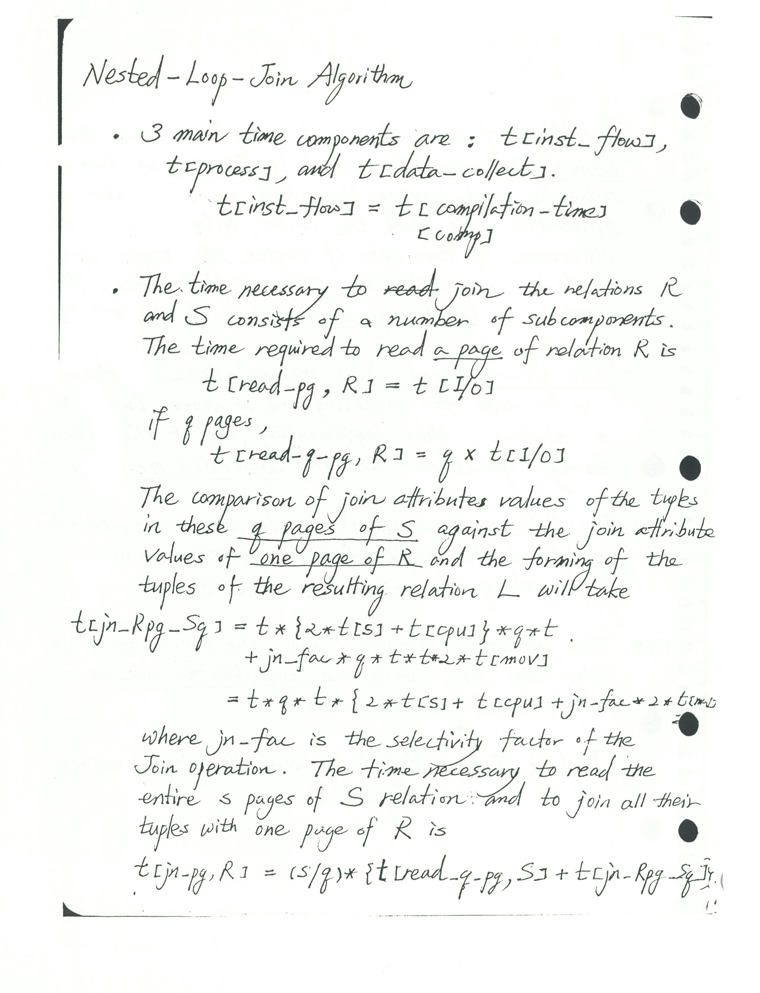 Nested-Loop-Join Algorithm
• 3 main time components are : t[inst_flow],
t[process], and t[data-collect].
t[inst_flow] = t[compilation-time]
[comp]
• The time necessary to read join the relations R
and S consists of a number of subcomponents.
The time required to read a page of relation R is
t[read-pg, R] = t[I/O]
if q pages,
t[read-q-pg, R] = q x t[I/O]
The comparison of join attributes values of the tuples
in these q pages of S against the join attribute
values of one page of R and the forming of the
tuples of the resulting relation L will take
t[jn_Rpg_Sq] = t*{2*t[s]+t[cpu]}*q*t.
+jn_fac*q*t*t*2*t[mov]
= t*q*t*{2*t[s]+t[cpu]+jn-fac*2*t[mov]
where jn-fac is the selectivity factor of the
Join operation. The time necessary to read the
entire s pages of S relation and to join all their
tuples with one page of R is
t[jn-pg, R] = (S/q)*{t[read_q-pg, S]+t[jn-Rpg_Sq]}.